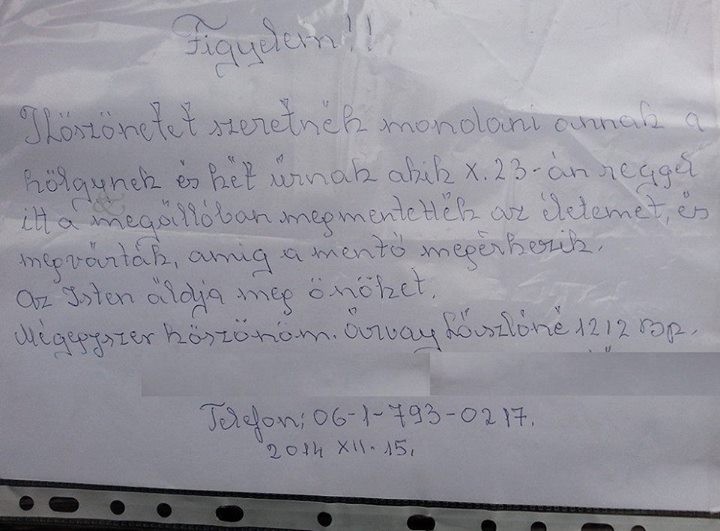 Figyelem!!
Köszönetet szeretnék mondani annak a
hölgynek és két úrnak akik X. 23-án reggel
itt a megállóban megmentették az életemet, és
megvárták, amig a mentő megérkezik.
Az Isten áldja meg önöket.
Mégegyszer köszönöm. Árvay Lászlóné 1212 Bp.
Telefon: 06-1-793-0217.
2014 XII. 15.